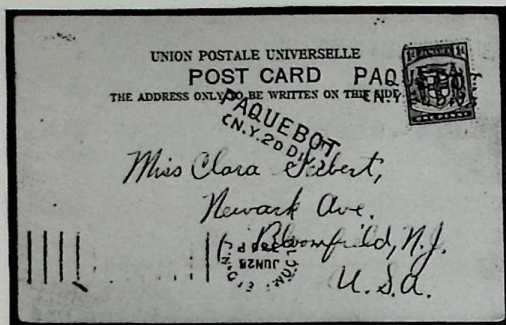 UNION POSTALE UNIVERSELLE
POST CARD
THE ADDRESS ONLY TO BE WRITTEN ON THIS SIDE.
PAQUEBOT
(N.Y. 2D DIV.)
PAQUEBOT
(N.Y. 2D DIV.)
Miss Clara Siebert,
Newark Ave.
Bloomfield, N.J.
U.S.A.
JUN 25